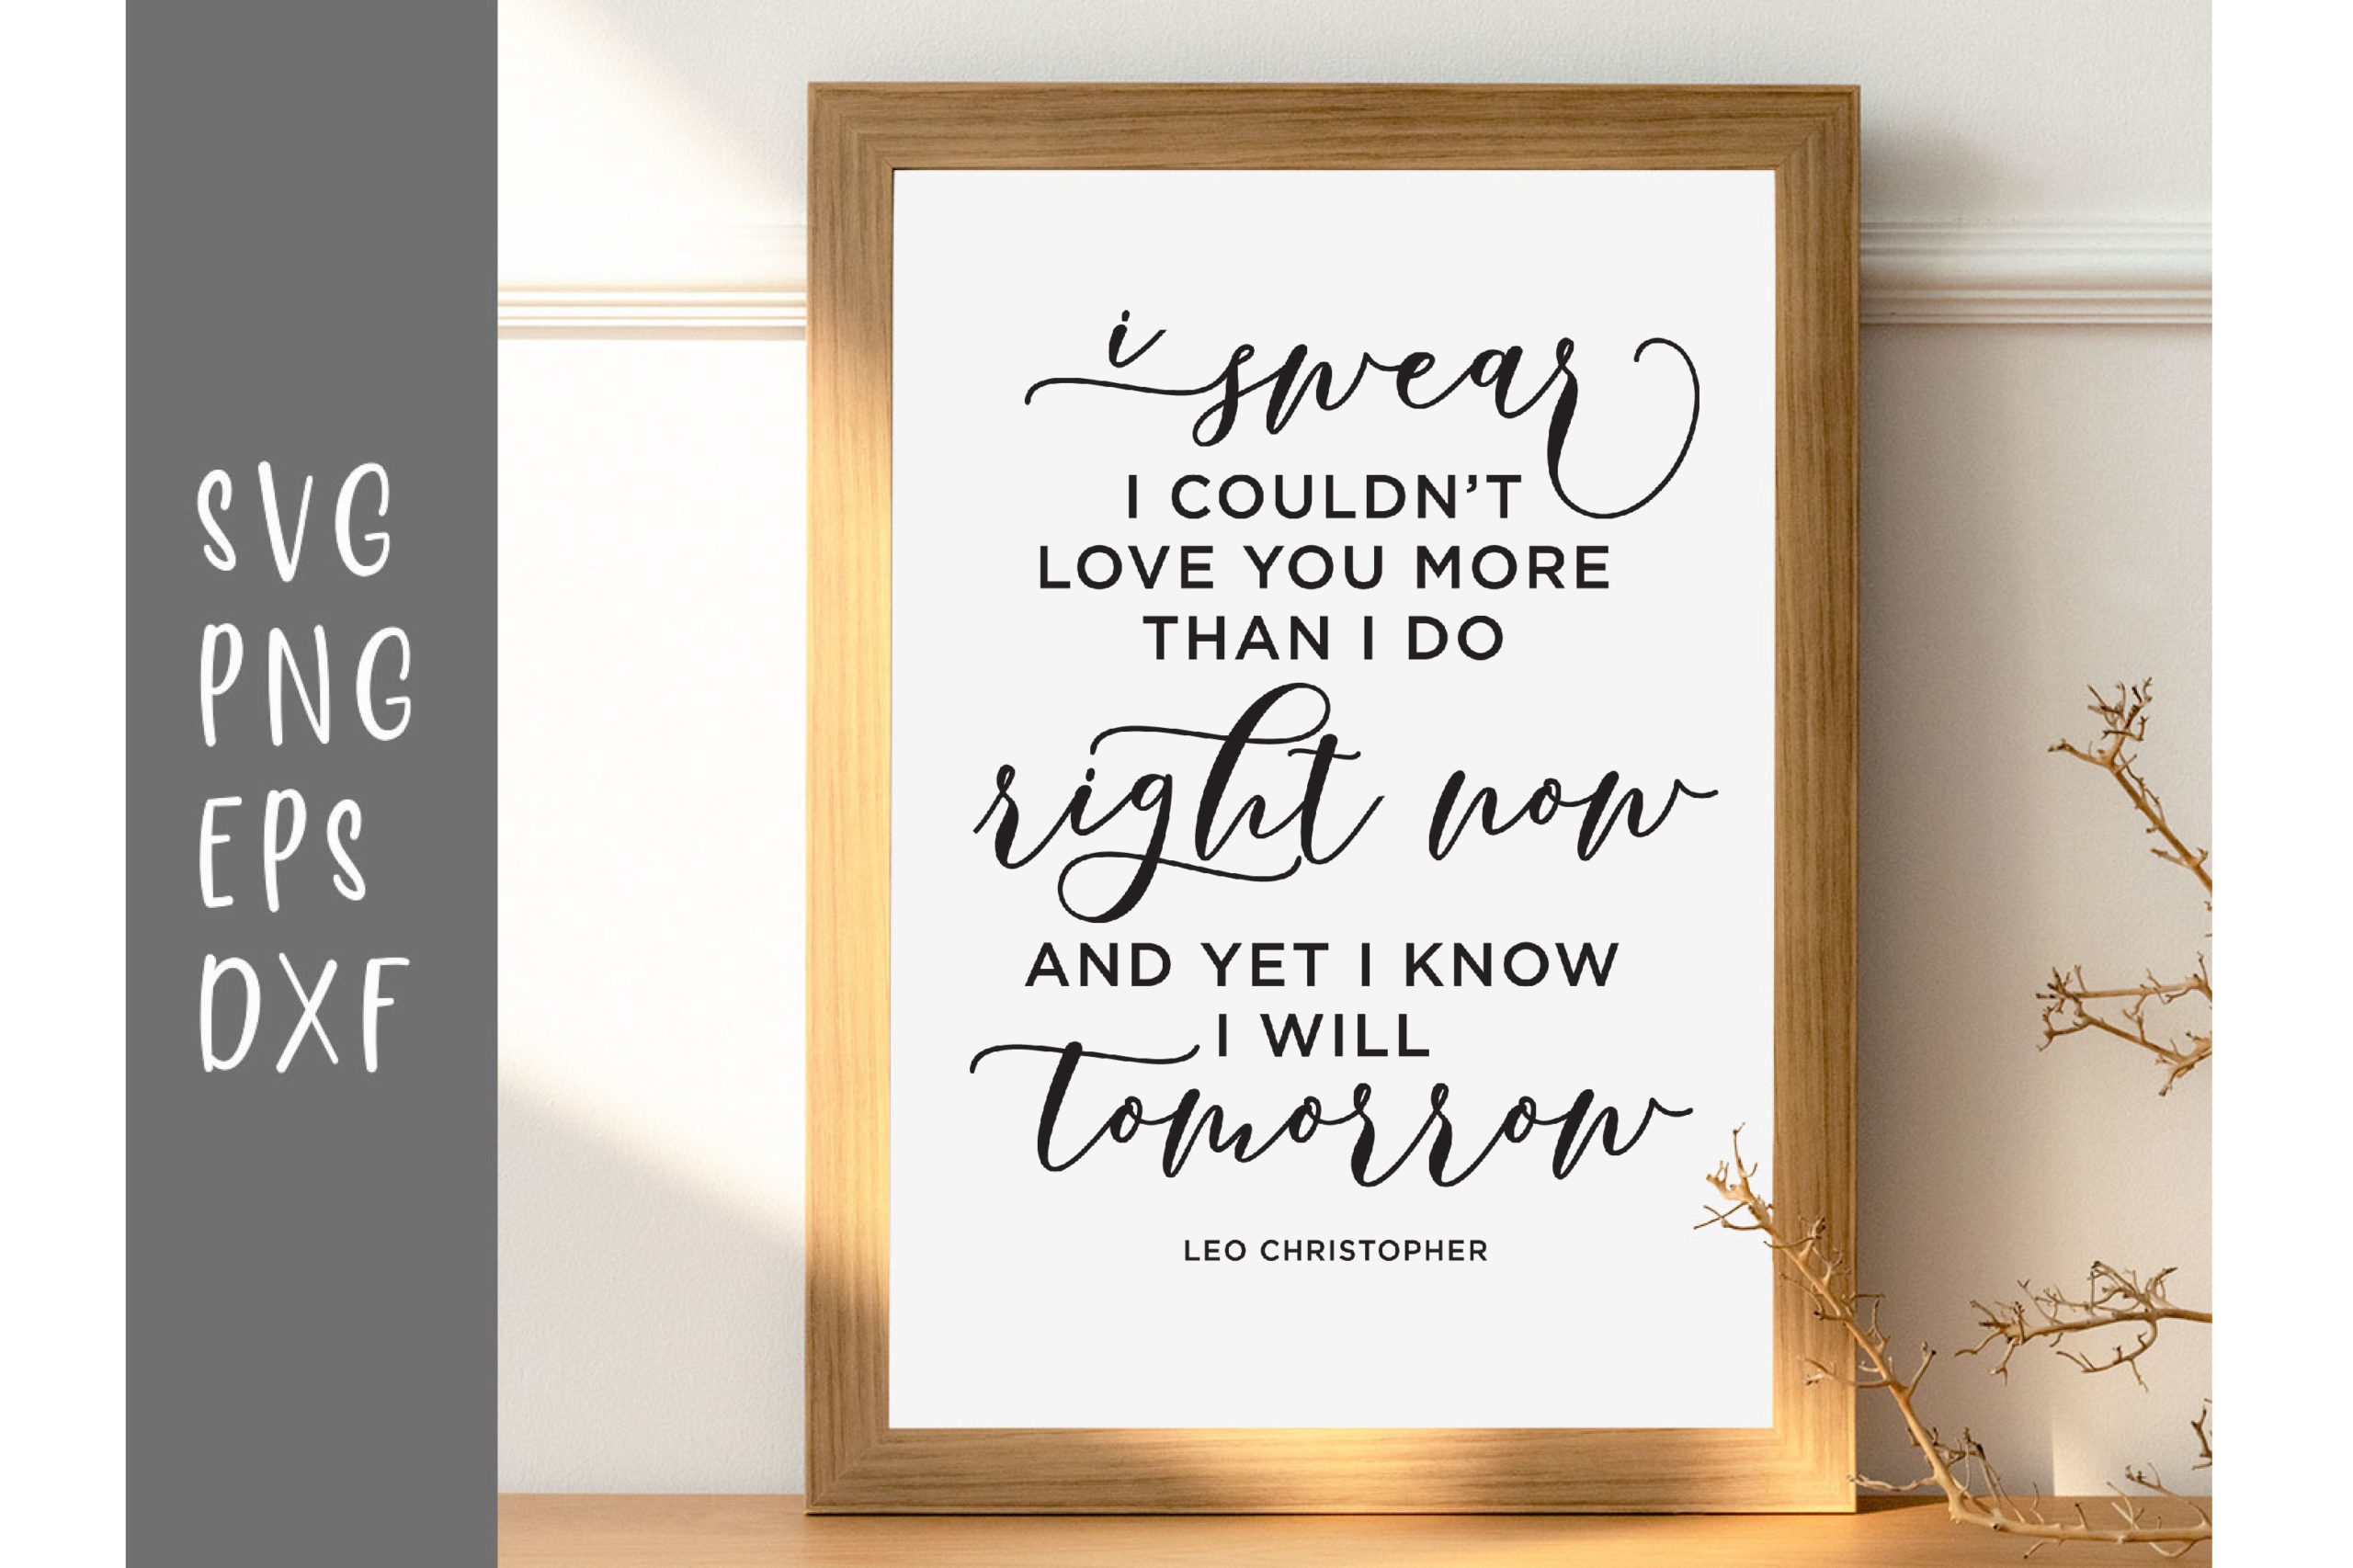 SVG
PNG
EPS
DXF
i swear
I COULDN'T
LOVE YOU MORE
THAN I DO
right now
AND YET I KNOW
I WILL
tomorrow
LEO CHRISTOPHER